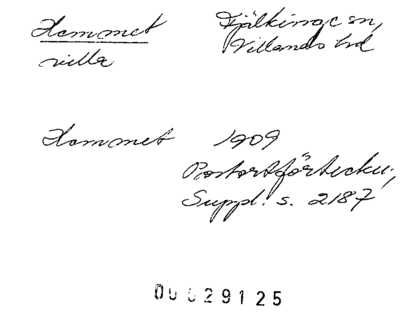 Hemmet Fjälkinge sn,
villa Villands hd
Hemmet 1909
Postortförteckn.,
Suppl. s. 2187
00029125